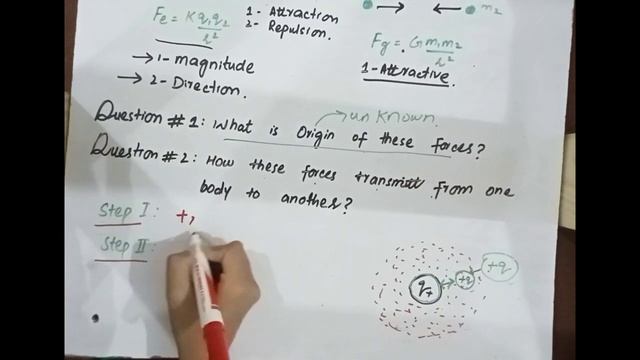 Fe = K q1 q2 / r²
1 - Attraction
2 - Repulsion.
m2
Fg = G m1 m2 / r²
1 - Attractive.
→ 1 - magnitude
→ 2 - Direction.
unknown.
Question # 1: What is Origin of these forces?
Question # 2: How these forces transmitt from one
body to another?
Step I: +,
Step II:
q+
+q
+q